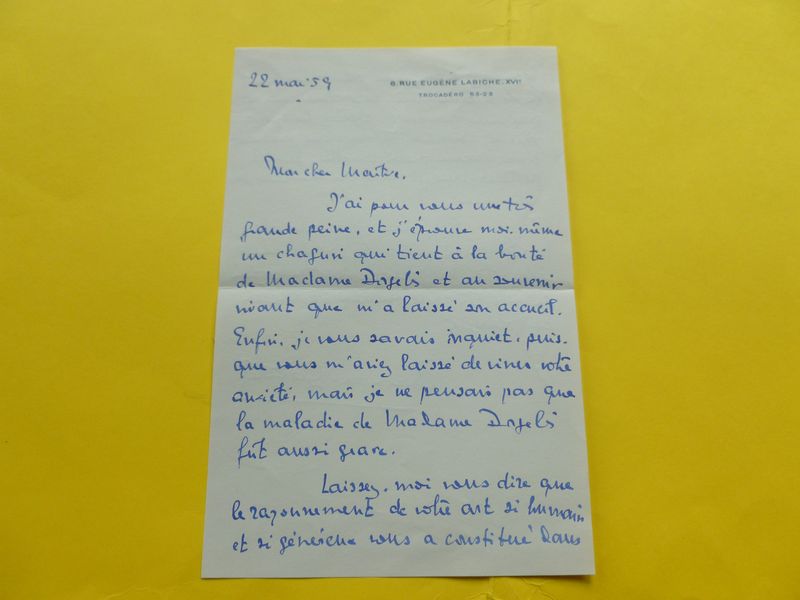 22 mai 59
6. RUE EUGÈNE LABICHE. XVIᵉ
TROCADÉRO 53-28
Mon cher Maître,
J'ai pour vous une très
grande peine, et j'éprouve moi-même
un chagrin qui tient à la bonté
de Madame Dorgelès et au souvenir
vivant que m'a laissé son accueil.
Enfin, je vous savais inquiet, puis-
que vous m'aviez laissé deviner votre
anxiété, mais je ne pensais pas que
la maladie de Madame Dorgelès
fût aussi grave.
Laissez-moi vous dire que
le rayonnement de votre art si humain
et si généreux vous a constitué dans